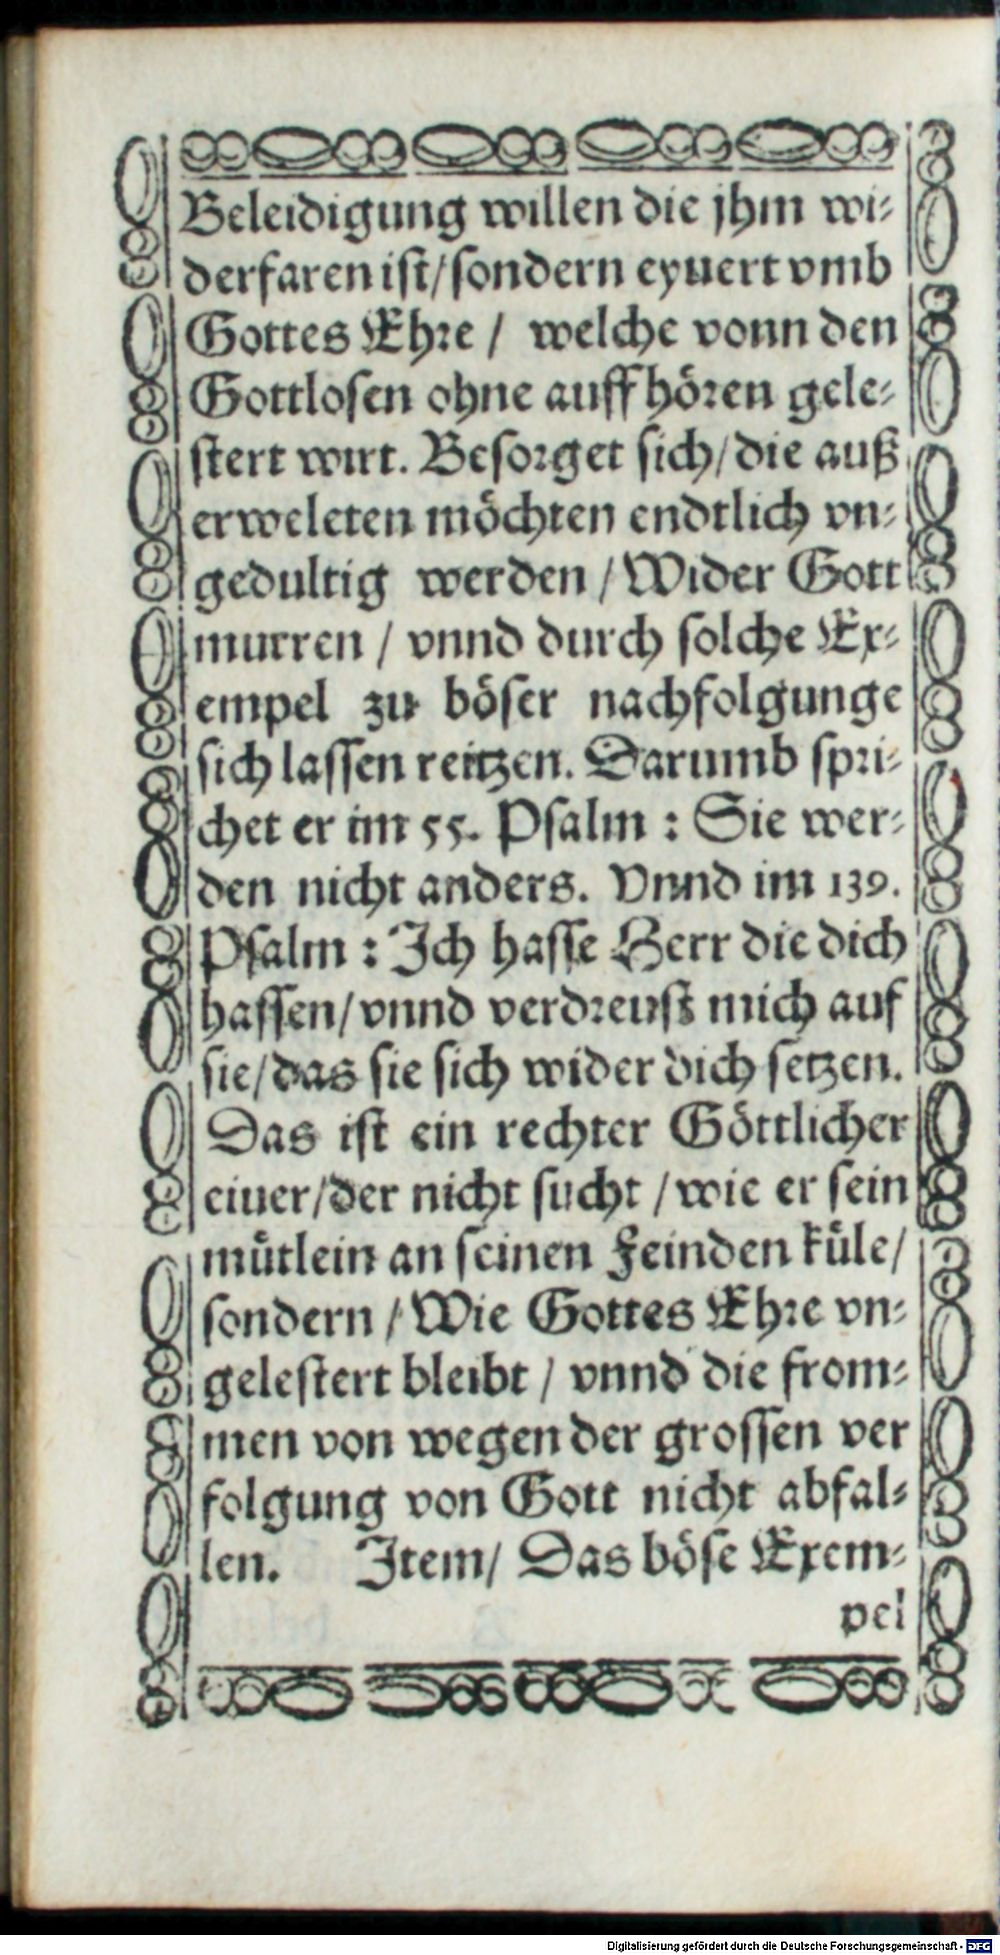 Beleidigung willen die jhm wi⸗
derfaren ist/sondern eyuert vmb
Gottes Ehre / welche vonn den
Gottlosen ohne auffhören gele⸗
stert wirt. Besorget sich/die auß
erweleten möchten endtlich vn⸗
gedultig werden / Wider Gott
murren / vnnd durch solche Ex⸗
empel zu böser nachfolgunge
sich lassen reitzen. Darumb spri⸗
chet er im 55. Psalm : Sie wer⸗
den nicht anders. Vnnd im 139.
Psalm : Ich hasse Herr die dich
hassen/vnnd verdreust mich auf
sie/das sie sich wider dich setzen.
Das ist ein rechter Göttlicher
eiuer/der nicht sucht / wie er sein
mütlein an seinen Feinden küle/
sondern / Wie Gottes Ehre vn⸗
gelestert bleibt / vnnd die from⸗
men von wegen der grossen ver
folgung von Gott nicht abfal⸗
len. Item/ Das böse Exem⸗
pel
Digitalisierung gefördert durch die Deutsche Forschungsgemeinschaft - DFG